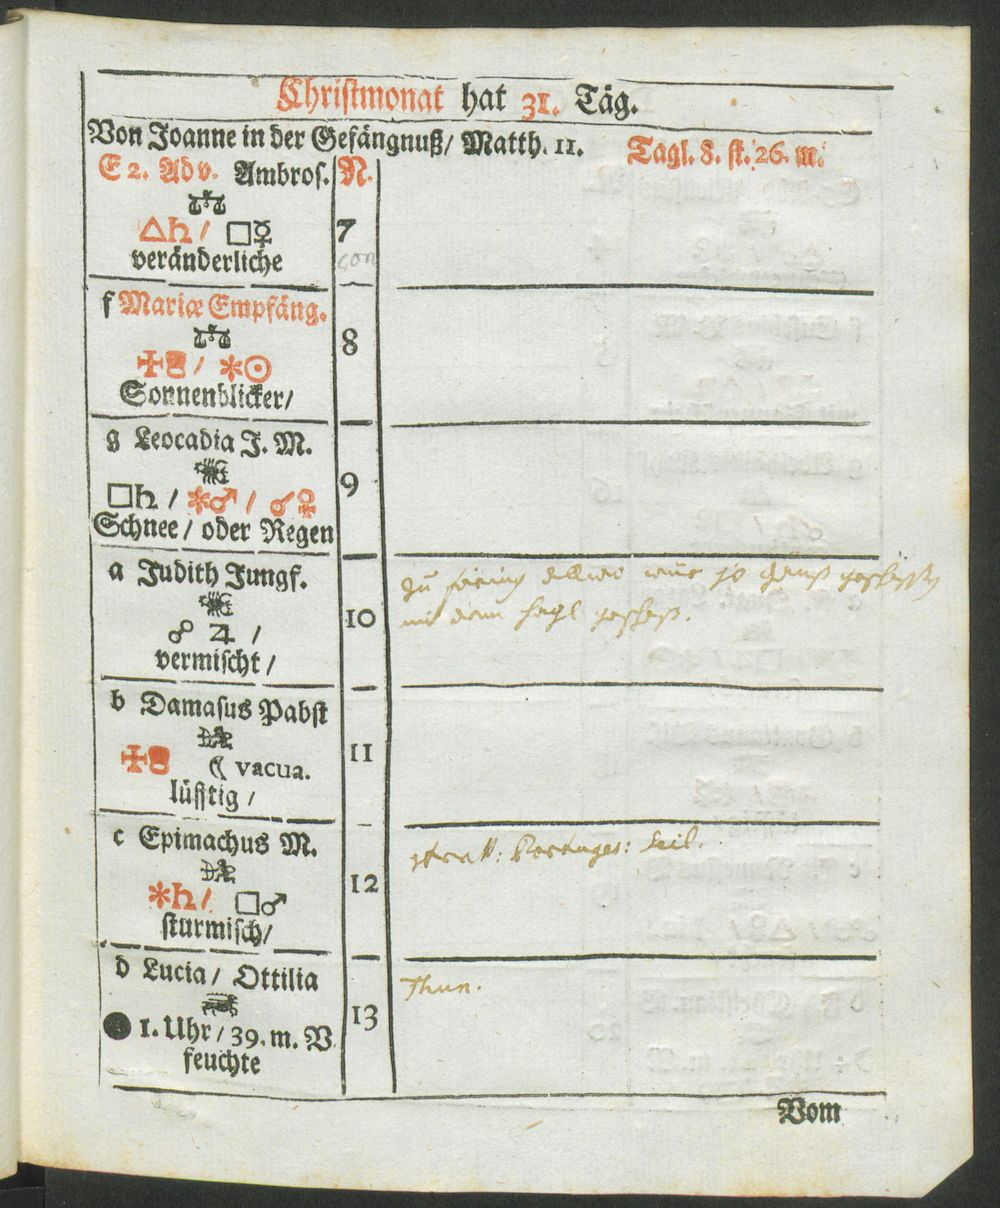 Christmonat hat 31. Täg.
Von Joanne in der Gefängnuß/ Matth. 11.
Tagl. 8. st. 26. m.
E 2. Adv. Ambros. N.
△♄ / □☿ 7
veränderliche
f Mariæ Empfäng.
/ ⚹☉ 8
Sonnenblicker/
g Leocadia J. M.
□♄ / ⚹♂ / ☌♀ 9
Schnee / oder Regen
a Judith Jungf.
☍ ♃ / 10
vermischt /
mit dem
b Damasus Pabst
☾ vacua. 11
lüfftig /
c Epimachus M.
⚹♄ / □♂ 12
sturmisch/
d Lucia / Ottilia
● 1. Uhr / 39. m. V. 13
feuchte
Thun.
Vom